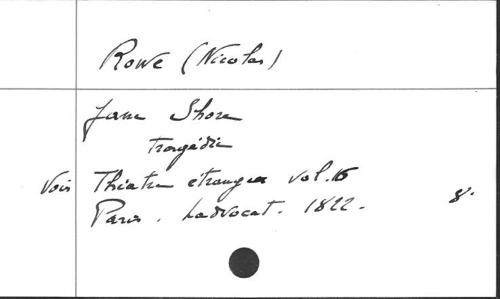 Rowe (Nicolas)
Jane Shore
tragédie
Voir Théatre etranger vol. 16
Paris. Ladvocat. 1822. 8°